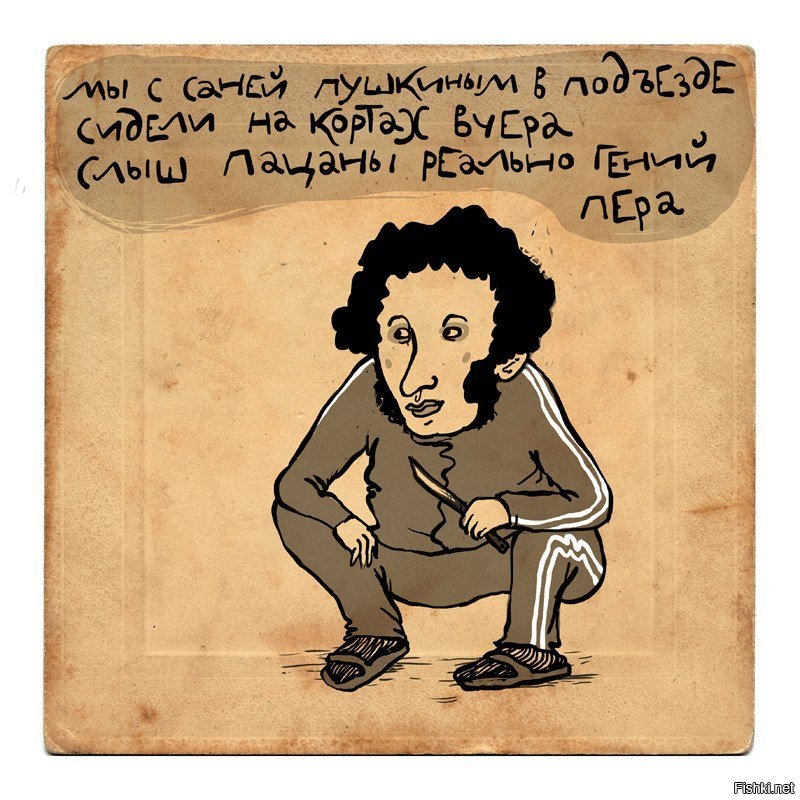 мы с саней пушкиным в подъезде
сидели на кортах вчера
слыш пацаны реально гений
пера
Fishki.net